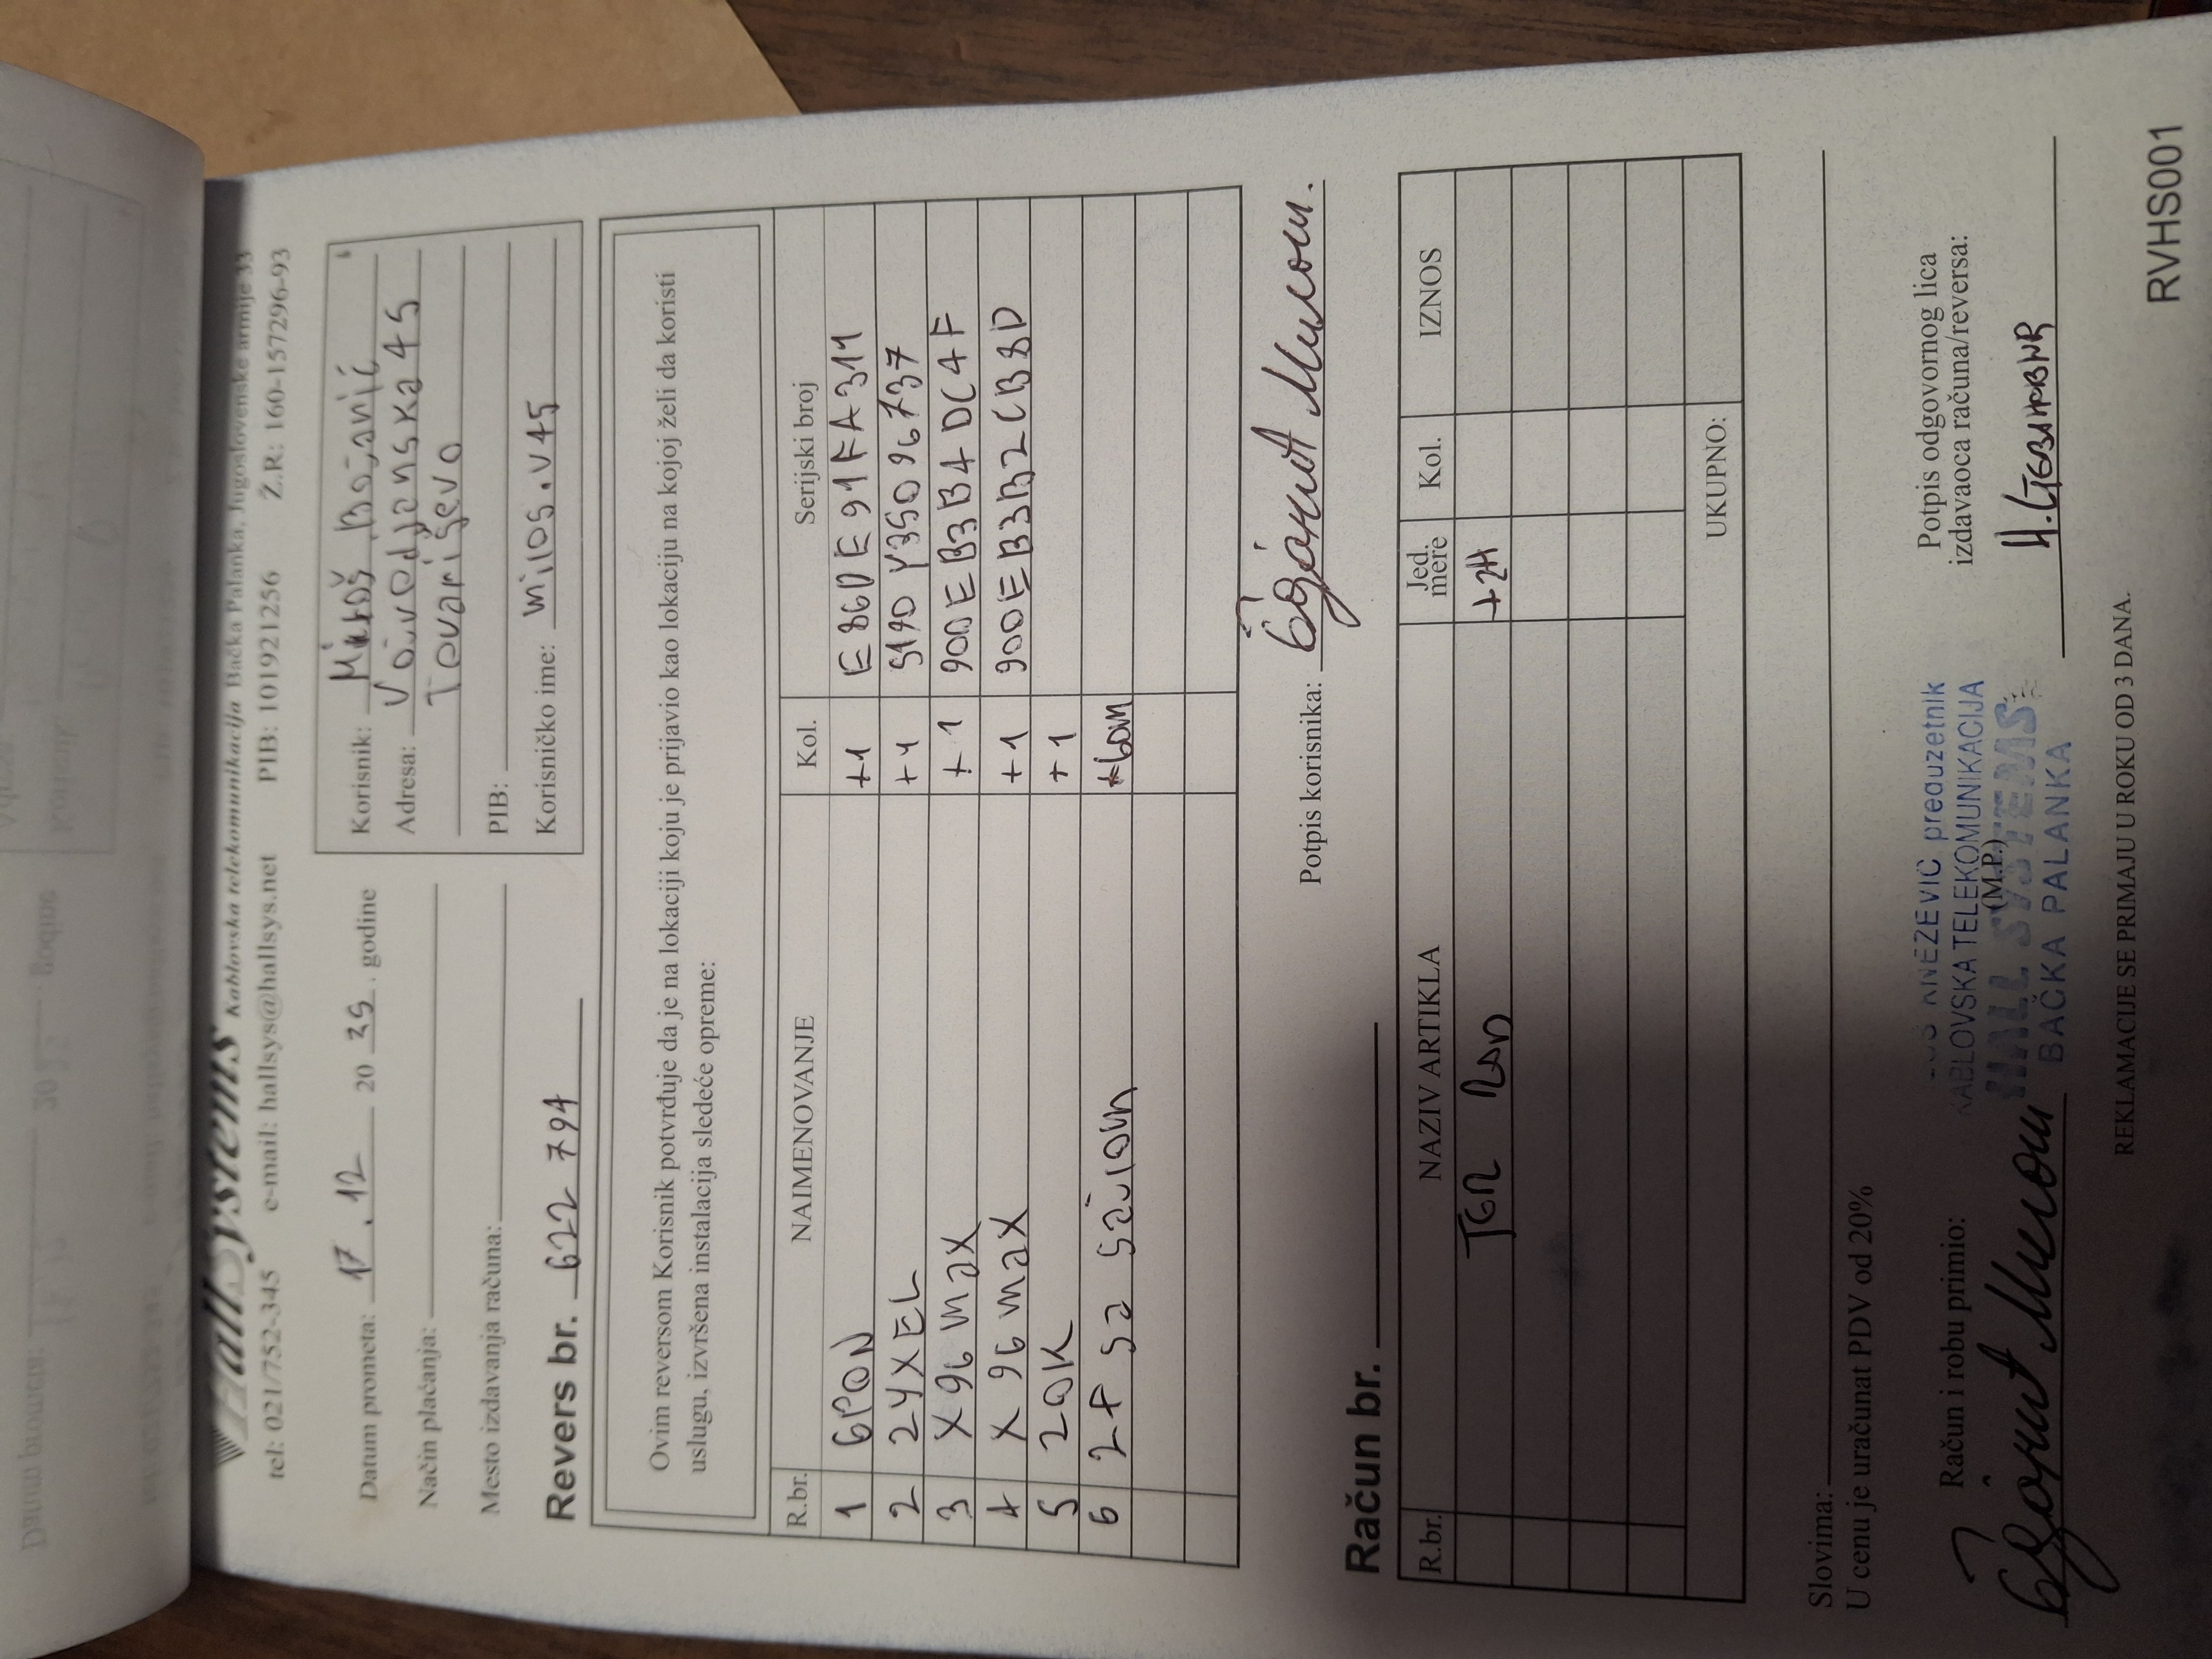 HallSystems Kablovska telekomunikacija Bačka Palanka, Jugoslovenske armije 33
tel: 021/752-345 e-mail: hallsys@hallsys.net PIB: 101921256 Ž.R.: 160-157296-93
Datum prometa: 17.12 20 35. godine
Način plaćanja:
Mesto izdavanja računa:
Korisnik: Miloš Bojanić
Adresa: Vojvodjanska 45
Tovariševo
PIB:
Korisničko ime: milos.v45
Revers br. 622 794
Ovim reversom Korisnik potvrđuje da je na lokaciji koju je prijavio kao lokaciju na kojoj želi da koristi
uslugu, izvršena instalacija sledeće opreme:
R.br. NAIMENOVANJE Kol. Serijski broj
1 GPON +1 E86DE91FA311
2 ZYXEL +1 S190Y35096737
3 X96 max +1 900EB3B4DC4F
4 X96 max +1 900EB3B2CB8D
5 20K +1
6 2P sa sajlom +60m
Potpis korisnika: Бојанић Милош.
Račun br.
R.br. NAZIV ARTIKLA Jed. mere Kol. IZNOS
+2H
UKUPNO:
Slovima:
U cenu je uračunat PDV od 20%
Račun i robu primio:
Бојанић Милош
(M.P.)
KNEŽEVIĆ preduzetnik
KABLOVSKA TELEKOMUNIKACIJA
HALL SYSTEMS
BAČKA PALANKA
Potpis odgovornog lica
izdavaoca računa/reversa:
REKLAMACIJE SE PRIMAJU U ROKU OD 3 DANA.
RVHS001